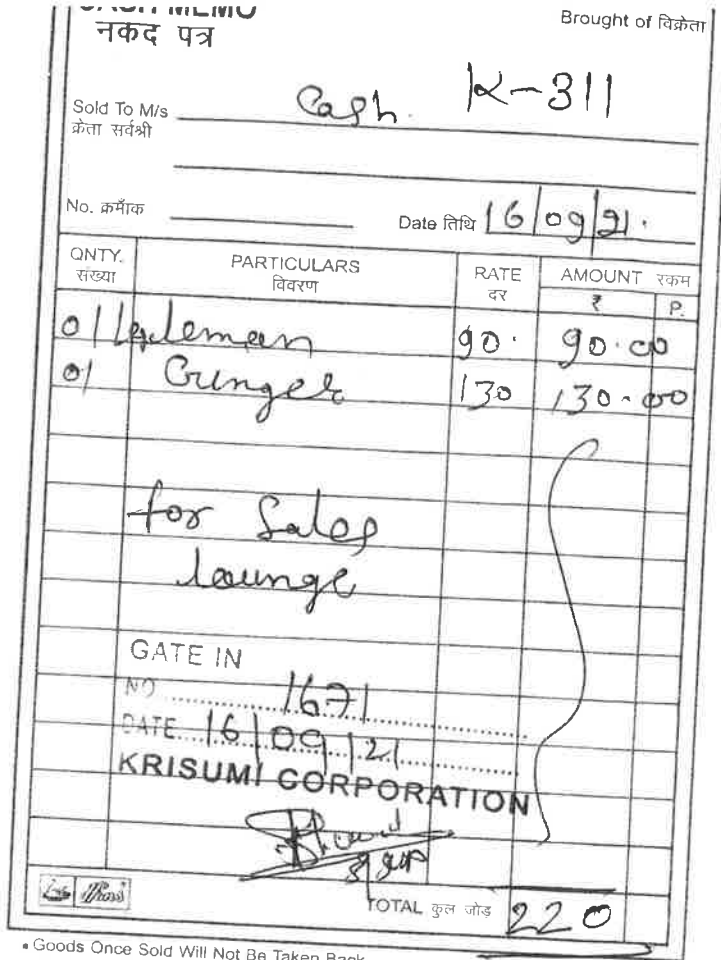 CASH MEMO
नकद पत्र
Brought of विक्रेता
K-311
Sold To M/s Cash.
क्रेता सर्वश्री
No. क्रमाँक
Date तिथि 16/09/21.
QNTY. PARTICULARS RATE AMOUNT रकम
संख्या विवरण दर ₹ P.
01 90. 90.00
01 Ginger 130 130.00
for Sales
lounge
GATE IN
NO 1671
DATE 16/09/21
KRISUMI CORPORATION
TOTAL कुल जोड़ 220
• Goods Once Sold Will Not Be Taken Back